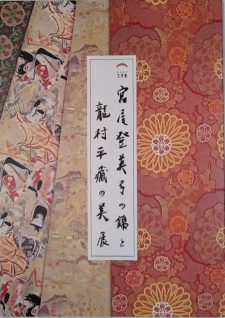 宮尾登美子の錦と
龍村平蔵の美展